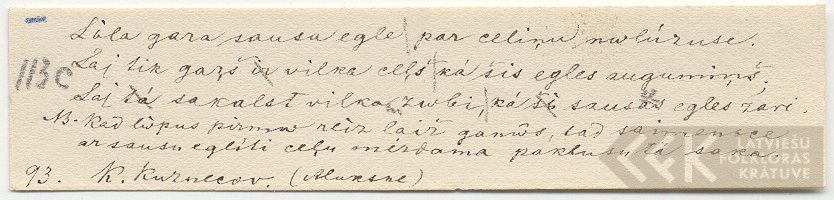 Lōla gara sausa egle par celiņu nolūzuse.
1113 c
Laj tik garš ir vilka ceļš kā šis egles augumiņš,
Laj tā sakalst vilka zobi kā šī sausas egles zari.
N3. Kad lōpus pirmo reiz laiž ganūs, tad saimenece
ar sausu eglīti ceļu mērdama paklusu tā saka.
93. K. Kuznecov. (Aluksne)
LATVIEŠU
FOLKLORAS
KRĀTUVE